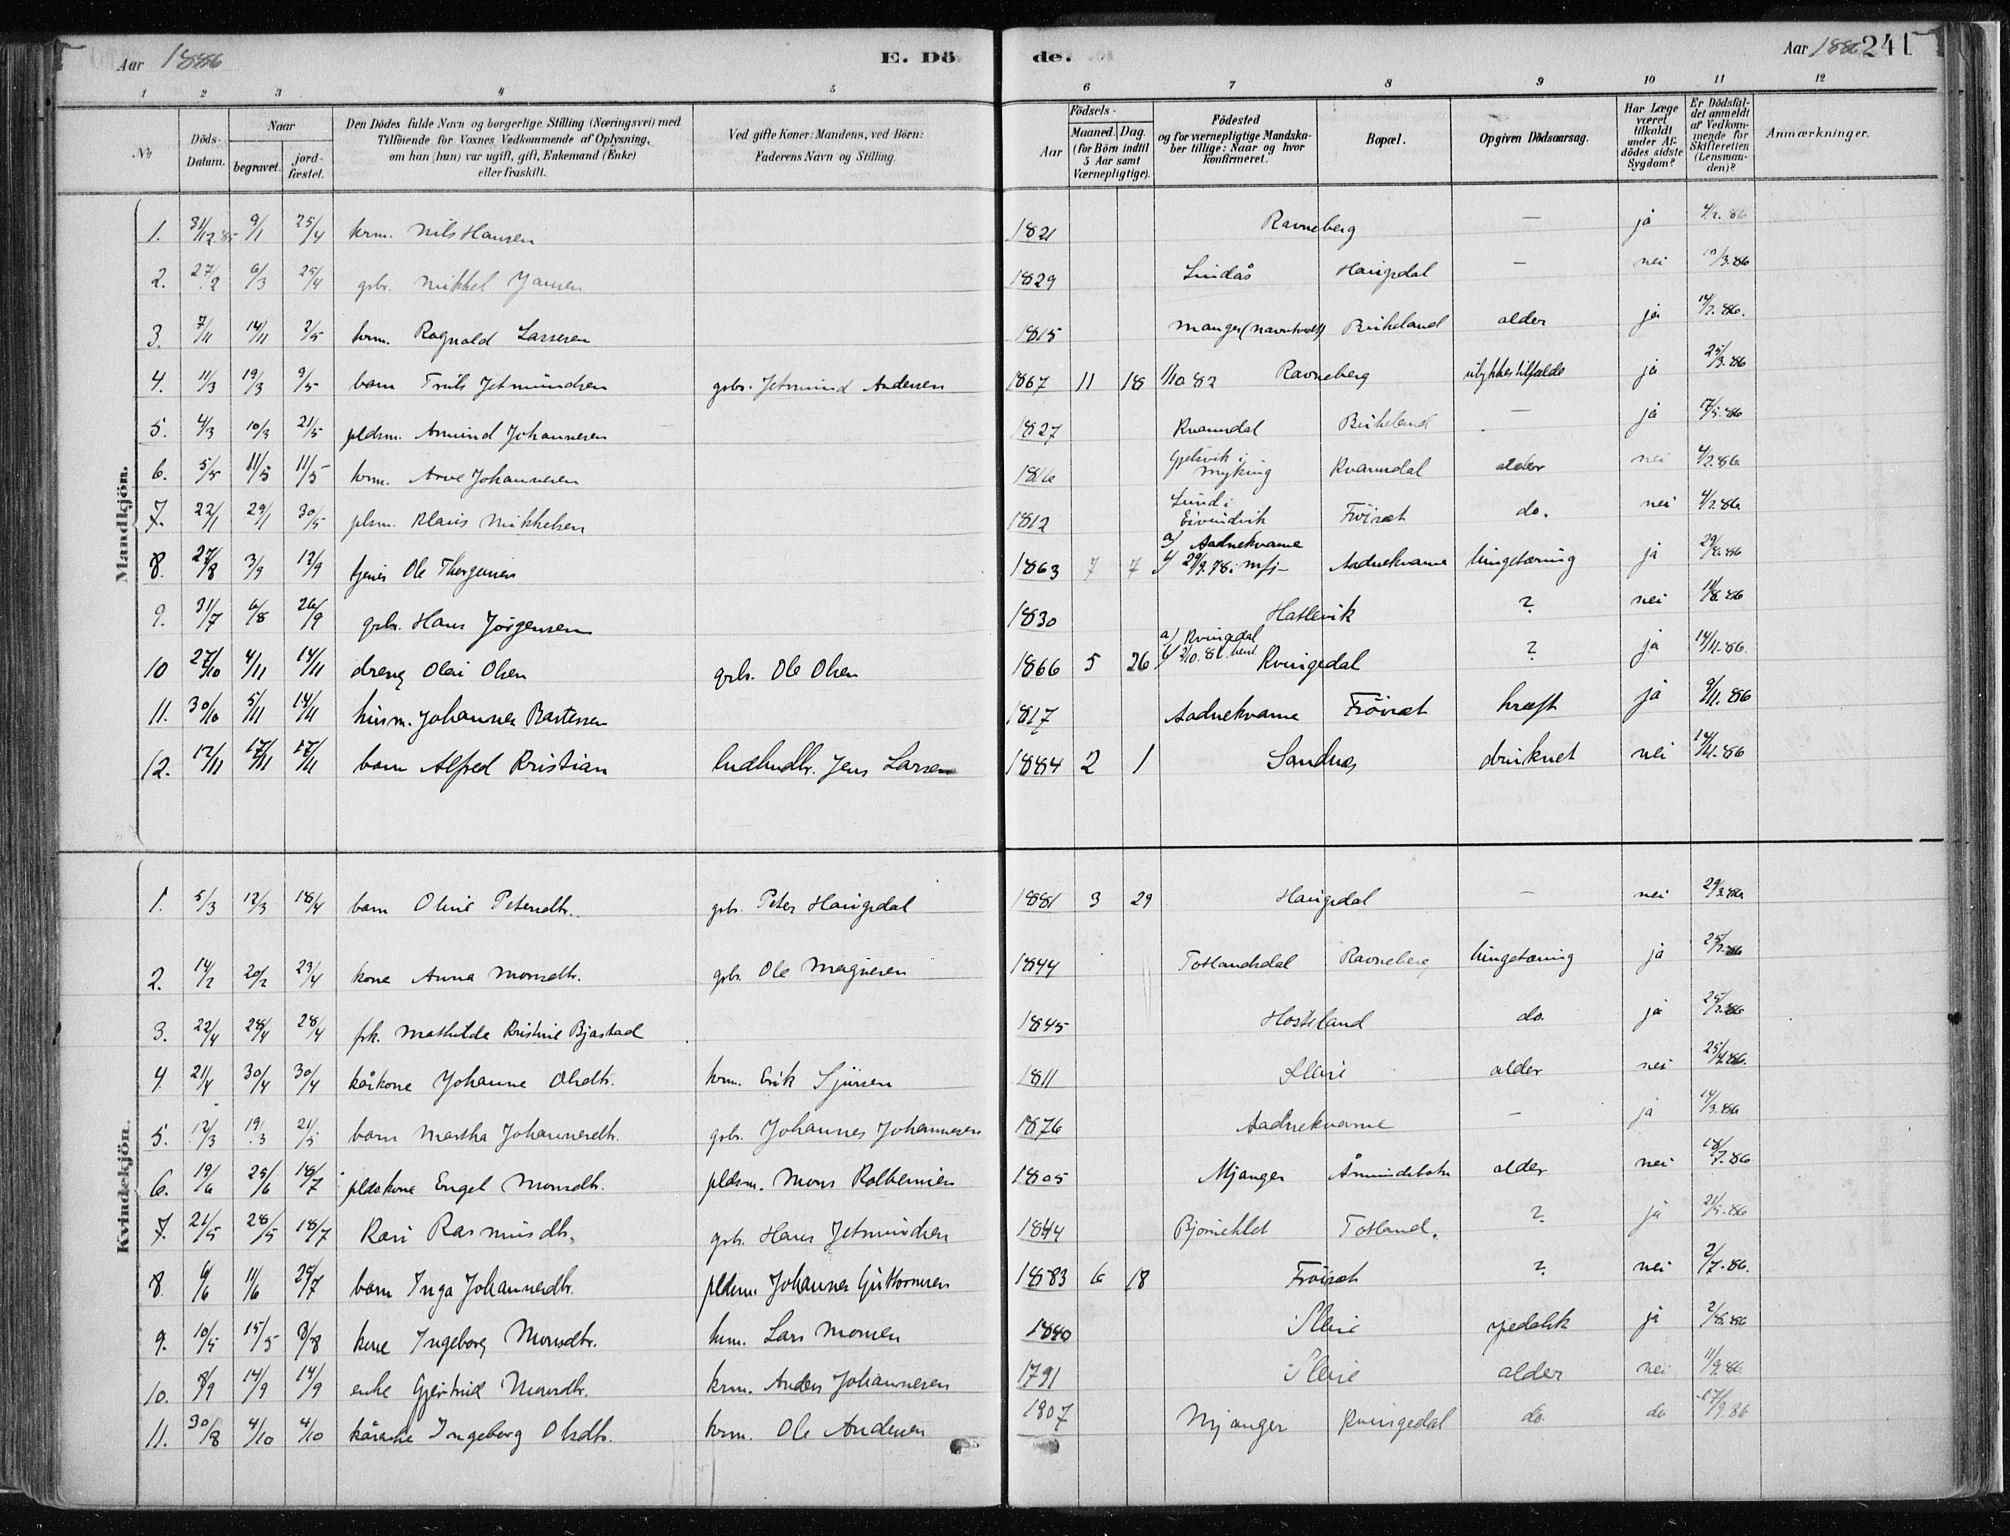 Aar 1886 E. Döde. Aar 1886 241
1 2 3 4 5 6 7 8 9 10 11 12
No
Döds-Datum.
Naar
begravet.
jordfæstet.
Den Dödes fulde Navn og borgerlige Stilling (Næringsvei) med
Tilförende for Voxnes Vedkommende af Oplysning,
om han (hun) var ugift, gift, Enkemand (Enke)
eller fraskilt.
Ved gifte Koner: Mandens, ved Börn:
Faderens Navn og Stilling.
Födsels-
Aar
Maaned. Dag.
(for Börn indtil
5 Aar samt
Værnepligtige).
Födested
og for værnepligtige Mandska-
ber tillige: Naar og hvor
konfirmeret.
Bopæl.
Opgiven Dödsaarsag.
Har Læge
været
tilkaldt
under Af-
dödes sidste
Sygdom?
Er Dödsfal-
det anmeldt
af Vedkom-
mende for
Skifteretten
(Lensman-
den)?
Anmærkninger.
Mandkjön.
1. 31/12.85 9/1 25/4 krm. Nils Hansen 1821 Ravneberg — ja 4/2.86
2. 27/2 6/3 25/4 gbr. Mikkel Jansen 1829 Lindås Haugsdal — nei 10/3.86
3. 7/11 14/11 2/5 krm. Ragnald Lassesen 1815 Manger Birkeland alder ja
4. 11/3 19/3 9/5 barn Truls Jetmundsen gbr. Jetmund Andersen 1867 11 18 1/10 82 Ravneberg ulykkestilfælde ja 25/3.86
5. 4/3 10/3 21/5 pldsm. Amund Johannesen 1827 Kvamsdal Birkeland — ja 17/5.86
6. 5/5 11/5 11/5 krm. Arve Johannesen 1816 Gjelsvik i Myking Kvamsdal alder nei 4/2.86
7. 22/1 29/1 30/5 plsm. Klaus Mikkelsen 1812 Lund i Eivindvik Fröiset do. nei 4/2.86
8. 27/8 3/9 12/9 tjener Ole Thorgersen 1863 7 7 a) Aadnekvame 29/9.78 i Mfj- Aadnekvame lungetæring ja 29/8.86
9. 31/7 6/8 26/9 gbr. Hans Jörgensen 1830 Hatlevik ? nei 14/8.86
10 27/10 4/11 14/11 dreng Olai Olsen gbr. Ole Olsen 1866 5 26 a) Kvingedal Kvingedal ? ja 14/11.86
11. 30/10 5/11 14/11 husm. Johannes Bartessen 1817 Aadnekvame Fröiset kræft ja 9/11.86
12. 12/11 17/11 17/11 barn Alfred Kristian Jens Larsen 1884 2 1 Sandnes druknet nei 14/11.86
Kvindekjön.
1. 5/3 12/3 18/4 barn Oline Petersdtr. gbr. Peter Haugsdal 1881 3 29 Haugsdal — nei 29/3.86
2. 14/2 20/2 23/4 kone Anna Monsdtr. gbr. Ole Magnesen 1844 Totlandsdal Ravneberg lungetæring ja 25/2.86
3. 22/4 28/4 28/4 frk. Mathilde Kristine Bjastad 1845 Hosteland do. ja
4. 21/4 30/4 30/4 kårkone Johanne Olsdtr. krm. Erik Sjursen 1811 Sleire alder nei 25/4.86
5. 12/3 19/3 21/5 barn Martha Johannesdtr. gbr. Johannes Johannesen 1876 Aadnekvame — ja 14/3.86
6. 19/6 25/6 18/7 pldskone Engel Monsdtr. pldsm. Mons Kolbeinsen 1805 Mjanger Åmundsbotn alder nei 18/7.86
7. 21/5 28/5 18/7 Kari Rasmusdtr. gbr. Hans Jetmundsen 1844 Bjørneklet Totland. ? ja 21/5.86
8. 6/6 11/6 25/7 barn Inga Johannesdtr. pldsm. Johannes Guttormsen 1883 6 18 Fröiset ? nei 2/7.86.
9. 10/5 15/5 8/8 kone Ingeborg Monsdtr. krm. Lars Monsen 1840 Sleire spedalsk ja 2/8.86
10. 8/9 14/9 14/9 enke Gjertrud Monsdtr. krm. Anders Johannesen 1791 Sleire alder nei 11/9.86
11. 30/8 4/10 4/10 kårenke Ingeborg Olsdtr. krm. Ole Andersen 1807 Mjanger Kvingedal do. do 17/9.86